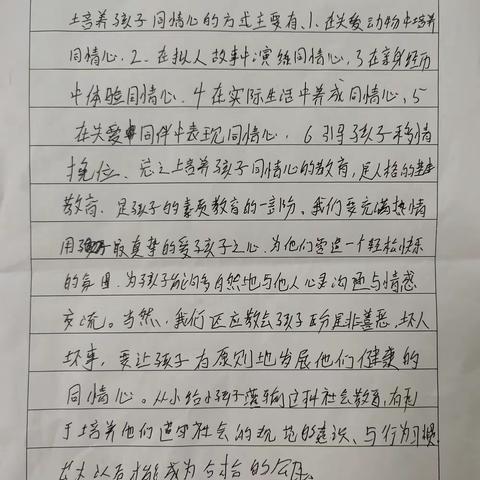 培养孩子同情心的方式主要有、1、在关爱动物中培养
同情心、2、在拟人故事中演练同情心、3 在亲身经历
中体验同情心、4 在实际生活中养成同情心、5
在关爱同伴中表现同情心、6 引导孩子移情
换位、总之上培养孩子同情心的教育，是人格的基础
教育、是孩子的素质教育的一部份、我们要充满热情
用最真挚的爱孩子之心、为他们营造一个轻松快乐
的氛围、为孩子能够自然地与他人心灵沟通与情感
交流。当然，我们还应教会孩子区分是非善恶，坏人
坏事，要让孩子有原则地发展他们健康的
同情心。从小给小孩子灌输这种社会教育，有利
于培养他们遵守社会的规范的意识、与行为习惯
长大以后才能成为与合格的公民